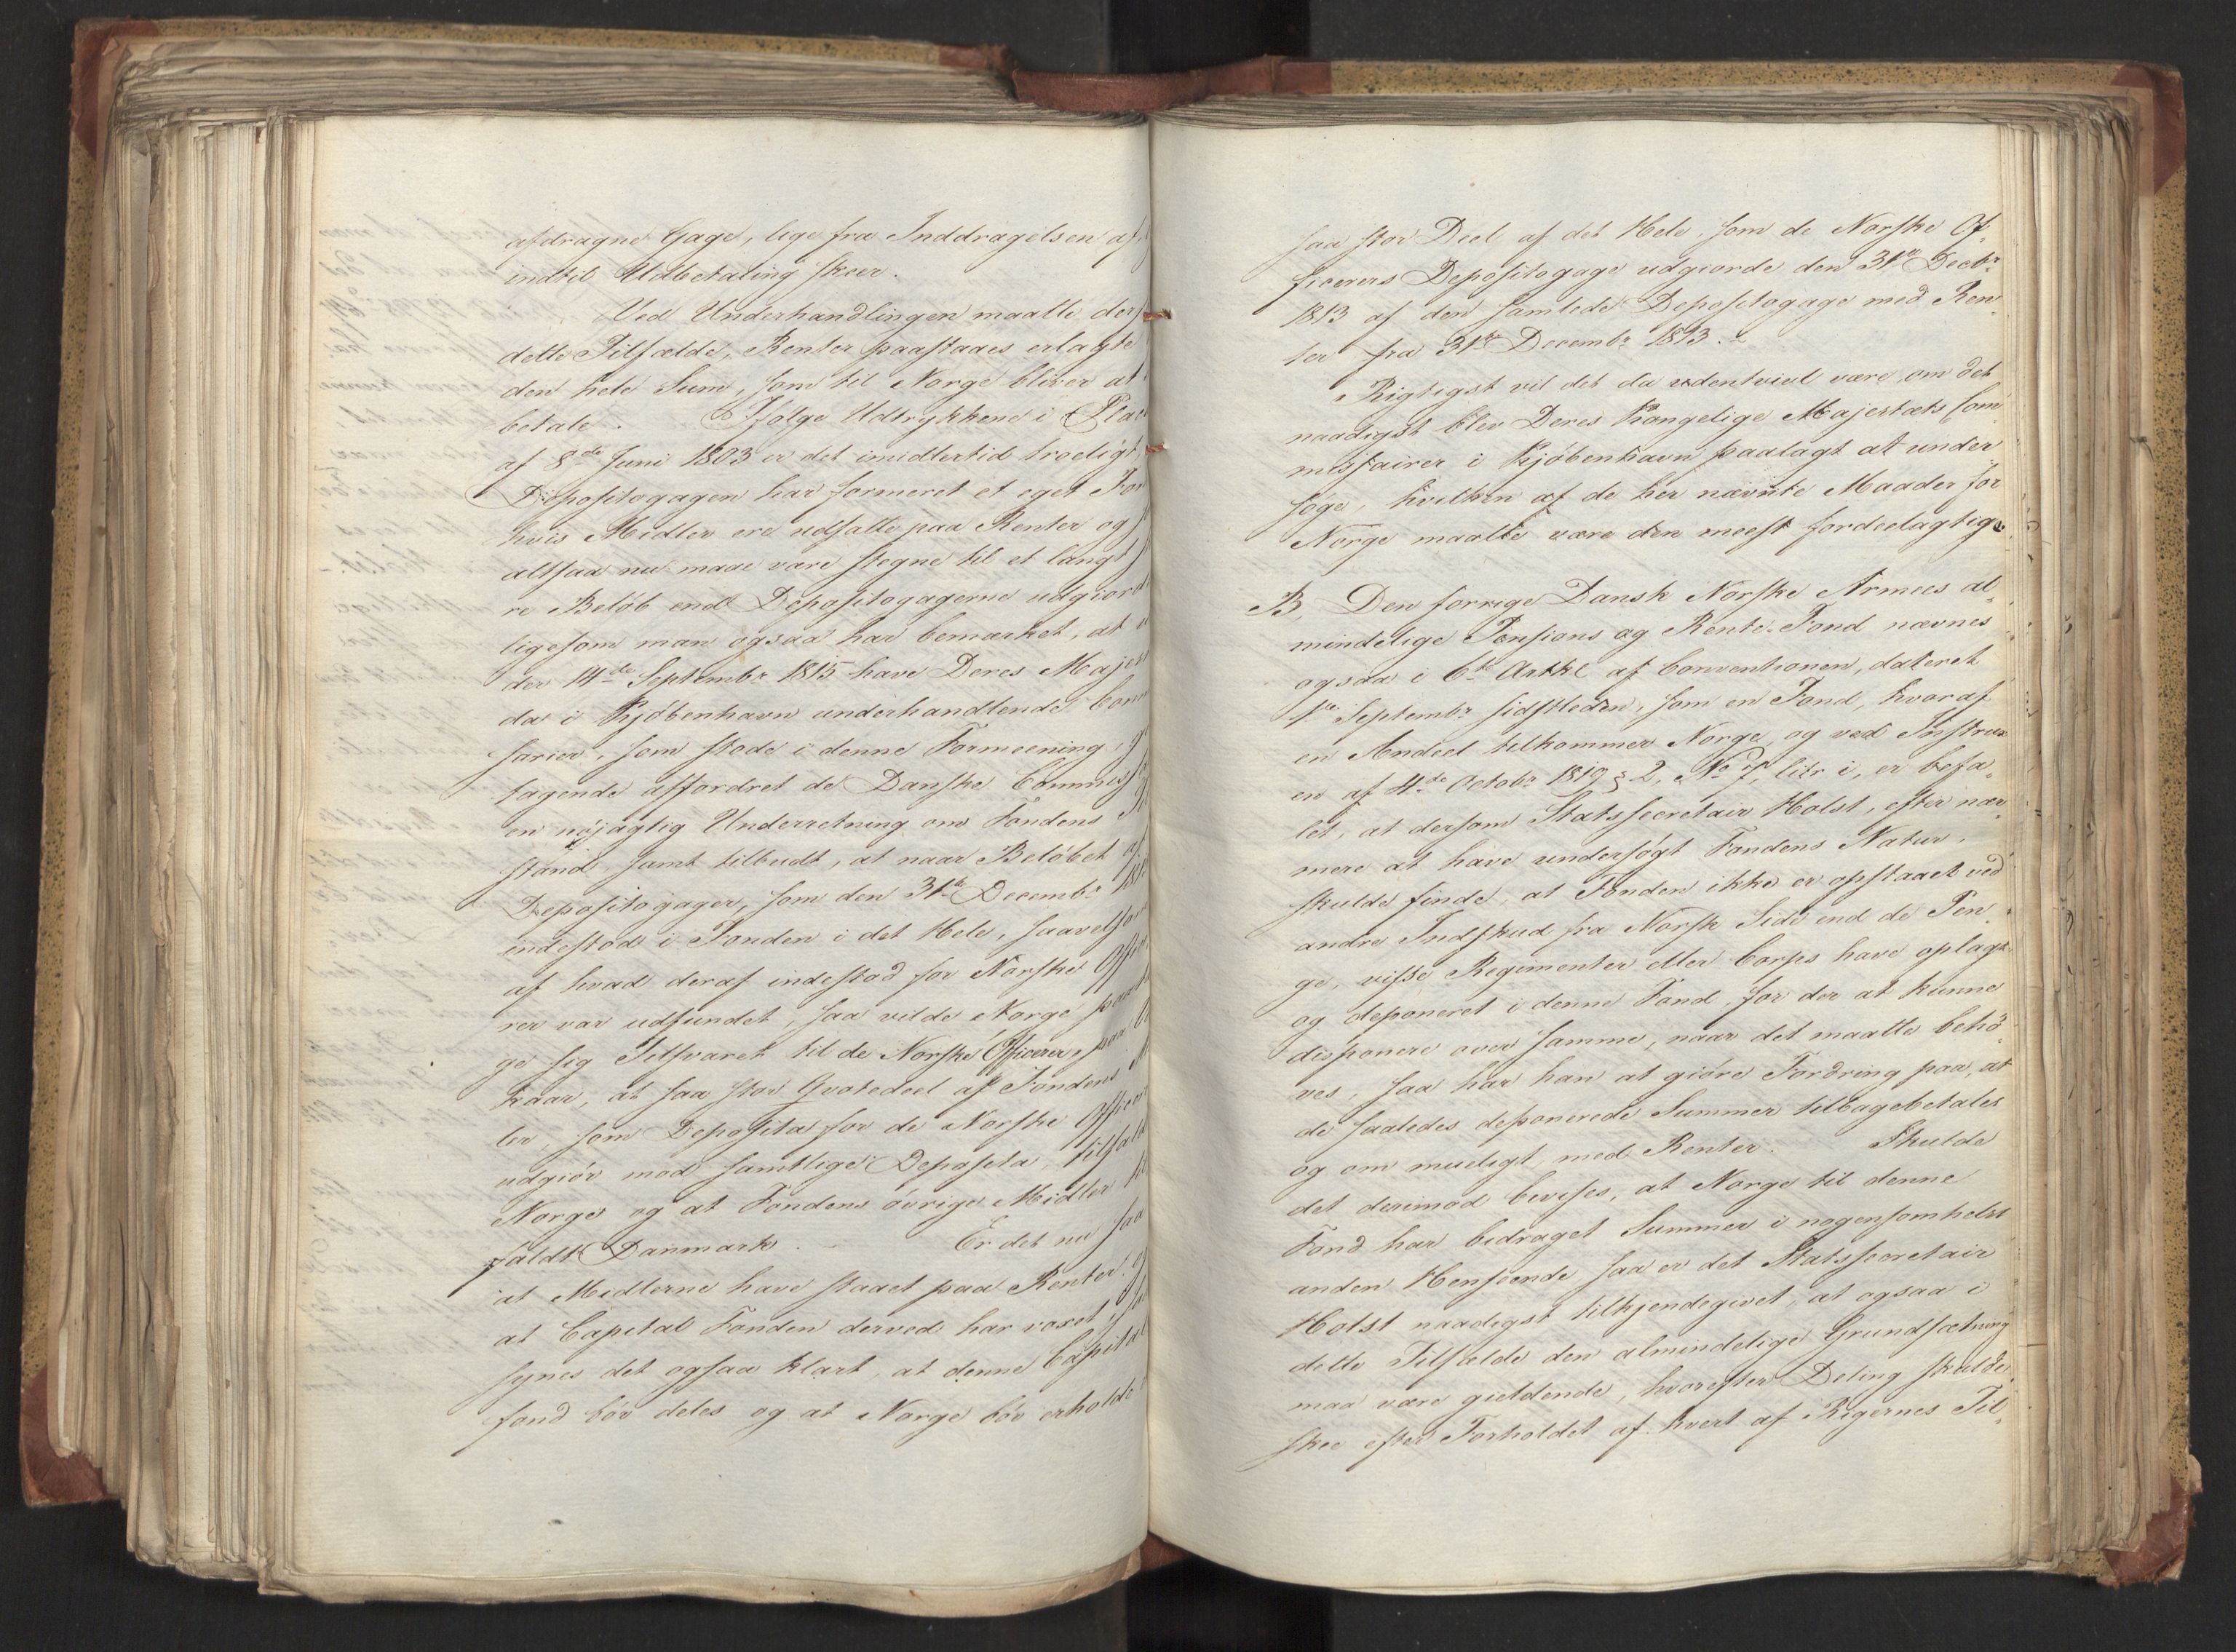 afdragne Gage, lige fra Inddragelsen af,
indtil Udbetaling skeer.
Ved Underhandlingen maatte der
dette Tilfælde, Renter paastaaes erlagte
den hele Sum, som til Norge bliver at
betale. Ifölge Udtrykkene i Plac
af 8de Juni 1803 er det imidlertid troeligt,
Depositogagen har formeret et eget Fon
hvis Midler ere udsatte paa Renter og
altsaa nu maae være stegne til et langt
re Belöb end Depositogagerne udgiord
ligesom man ogsaa har bemærket, at
der 14de Septembr 1815 have Deres Majes
da i Kjöbenhavn underhandlende Com
sarier, som stode i denne Formeening,
tagende affordret de Danske Commis
en nöjagtig Underretning om Fondens
stand samt tilbudt, at naar Belöbet af
Depositogager, som den 31te Decembr 181
indestod i Fonden i det Hele, saavelsom
af hvad deraf indestod for Norske Offi
rer var udfundet, saa vilde Norge paa
ge sig Tilsvaret til de Norske Officerer, paa
kaar, at saa stor Qvotedeel af Fondens
ler, som Deposita for de Norske Officer
udgiör mod samtlige Deposita, tilfald
Norge og at Fondens övrige Midler
faldt Danmark. Er det nu saa
at Midlerne have staaet paa Renter og
at Capital Fonden derved har voxet,
synes det ogsaa klart, at denne Capital
fond bör deles og at Norge bör erholde
saa stor Deel af det Hele, som de Norske Of-
ficerers Depositogage udgiorde den 31te Decbr
1813 af den samlede Depositogage med Ren-
ter fra 31te Decembr 1813.
Rigtigst vil det da udentvivl være om det
naadigst blev Deres Kongelige Majestæts Com
missairer i Kjöbenhavn paalagt at under
söge, hvilken af de her nævnte Maader for
Norge maatte være den meest fordeelagtige
B, Den forrige Dansk Norske Armees al-
mindelige Pensions og Rente-Fond nævnes
ogsaa i 6te Artkl af Conventionen, dateret
1te Septembr sidstleden, som en Fond, hvoraf
en Andeel tilkommer Norge, og ved Instrux
en af 4de Octobr 1819 § 2, No 7, litr i, er befa-
let, at dersom Statssecretair Holst, efter nær-
mere at have undersögt Fondens Natur,
skulde finde, at Fonden ikke er opstaaet ved
andre Indskud fra Norsk Side end de Pen-
ge, visse Regimenter eller Corps have oplagt
og deponeret i denne Fond, for der at kunne
disponere over samme, naar det maatte behö-
ves, saa har han at giöre Fordring paa, at
de saaledes deponerede Summer tilbagebetales
og om mueligt med Renter. Skulde
det derimod bevises, at Norge til denne
Fond har bidraget Summer i nogensomhelst
anden Henseende saa er det Statssecretair
Holst naadigst tilkjendegivet, at ogsaa i
dette Tilfælde den almindelige Grundsætning
maa være gieldende, hvorefter Deling skulde
skee efter Forholdet af hvert af Rigernes Til-